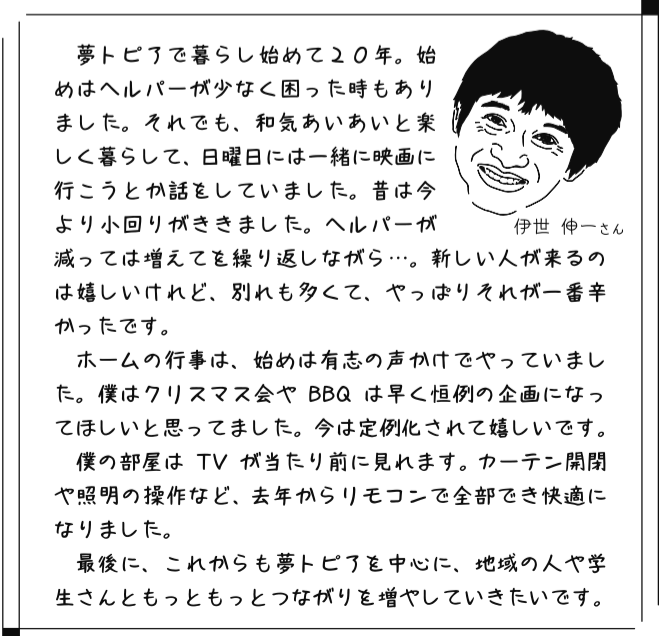 夢トピアで暮らし始めて20年。始
めはヘルパーが少なく困った時もあり
ました。それでも、和気あいあいと楽
しく暮らして、日曜日には一緒に映画に
行こうとか話をしていました。昔は今
より小回りがききました。ヘルパーが
伊世 伸一さん
減っては増えてを繰り返しながら…。新しい人が来るの
は嬉しいけれど、別れも多くて、やっぱりそれが一番辛
かったです。
ホームの行事は、始めは有志の声かけでやっていまし
た。僕はクリスマス会や BBQ は早く恒例の企画になっ
てほしいと思ってました。今は定例化されて嬉しいです。
僕の部屋は TV が当たり前に見れます。カーテン開閉
や照明の操作など、去年からリモコンで全部でき快適に
なりました。
最後に、これからも夢トピアを中心に、地域の人や学
生さんともっともっとつながりを増やしていきたいです。